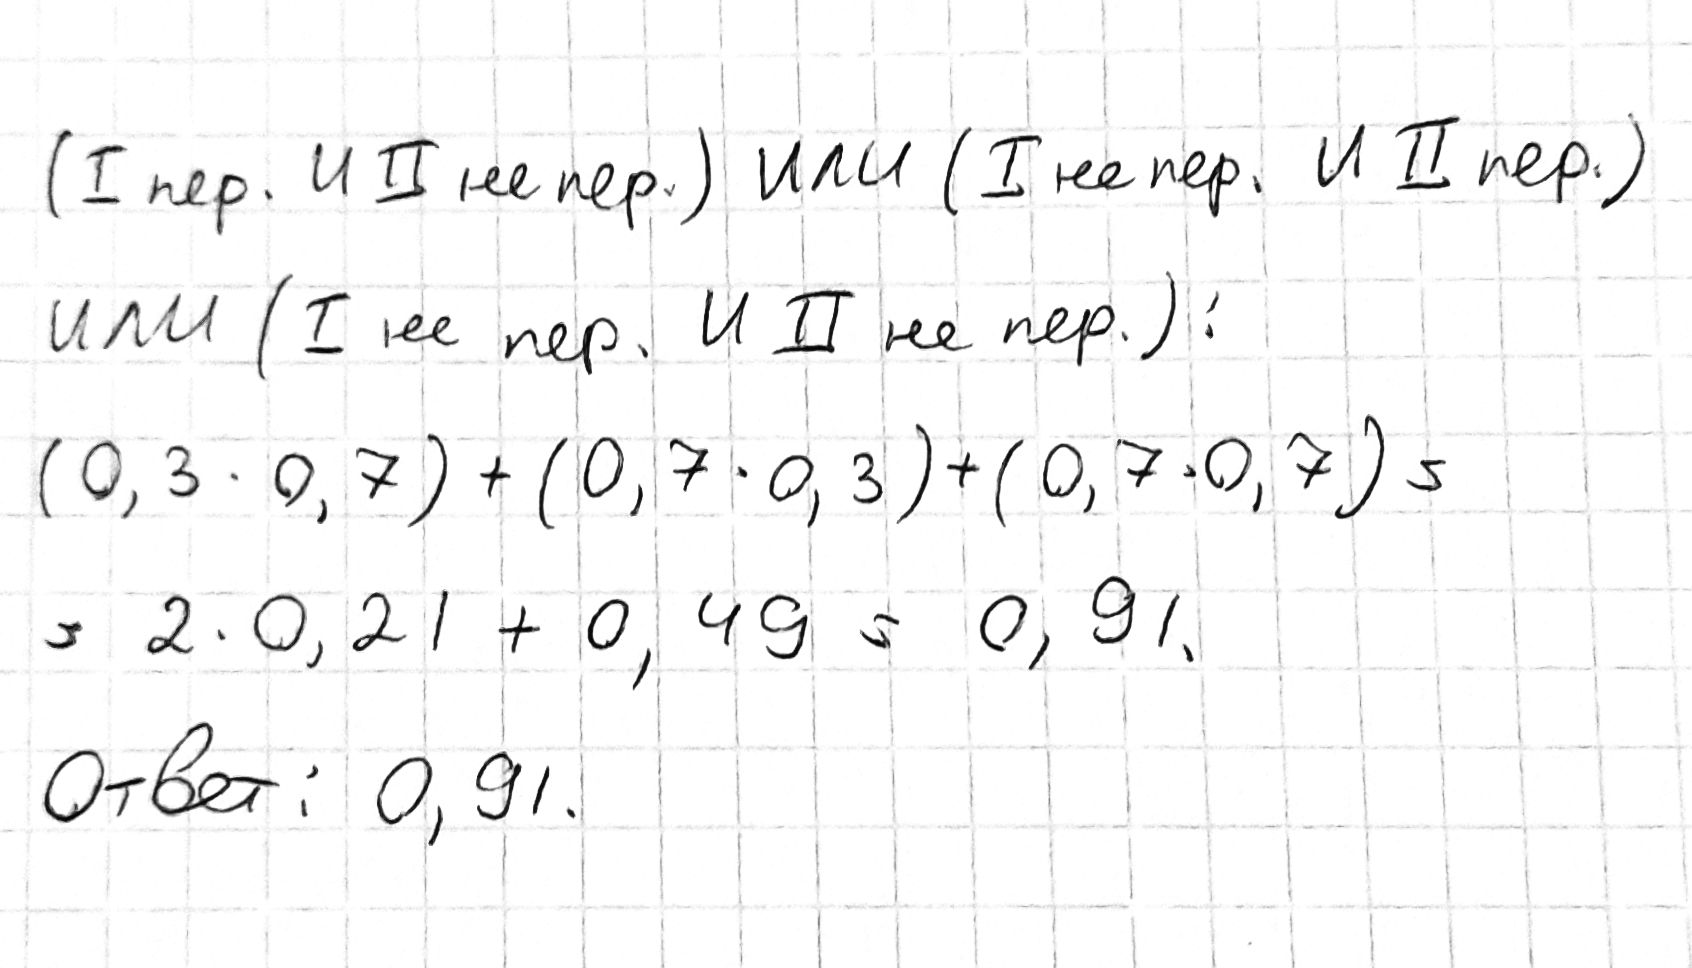 (I пер. И II не пер.) ИЛИ (I не пер. И II пер.)
ИЛИ (I не пер. И II не пер.):
(0,3 · 0,7) + (0,7 · 0,3) + (0,7 · 0,7) =
= 2 · 0,21 + 0,49 = 0,91.
Ответ: 0,91.